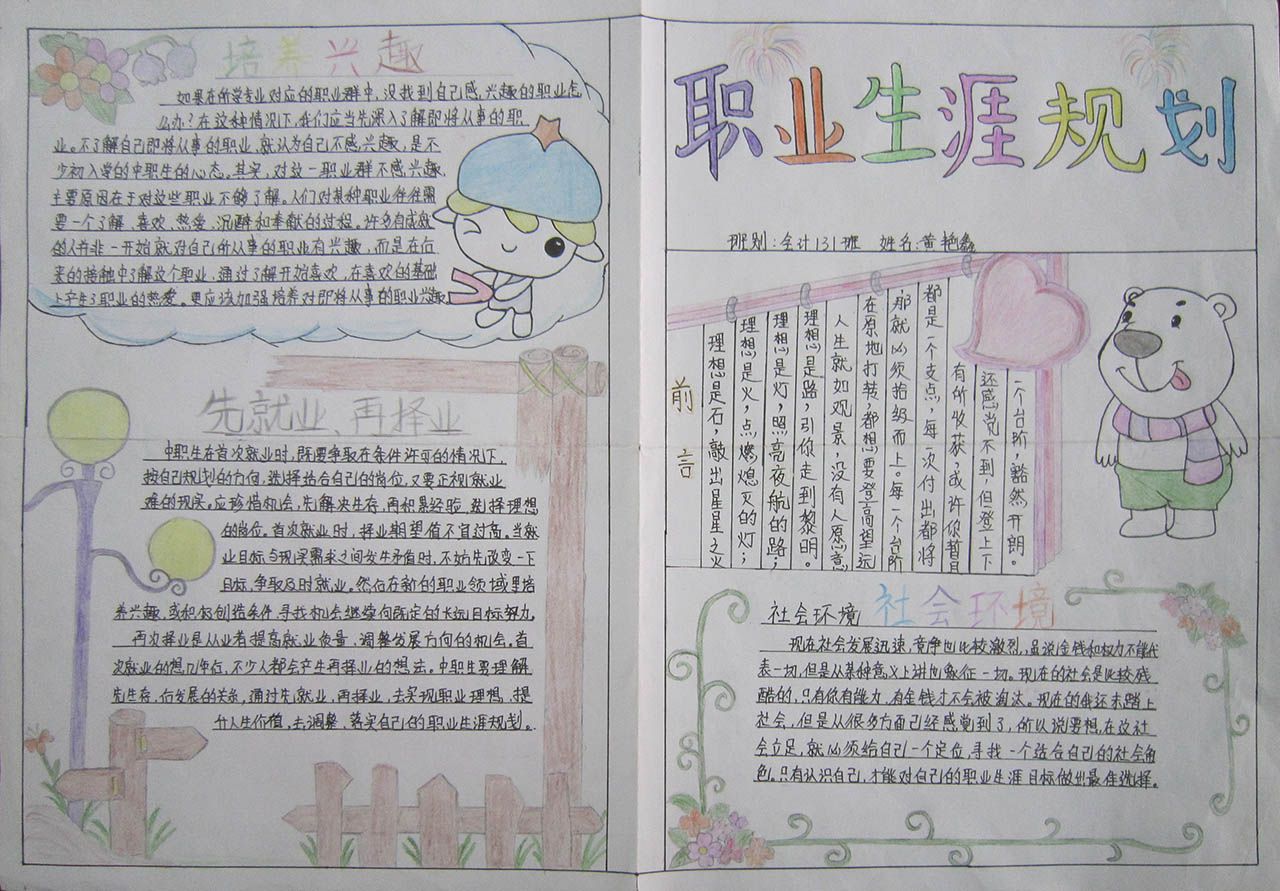 职业生涯规划
班别:会计131班 姓名:黄艳
前言
理想是石,敲出星星之火
理想是火,点燃熄灭的灯;
理想是灯,照亮夜航的路;
理想是路,引你走到黎明。
人生就如观景,没有人愿意
在原地打转,都想要登高望远
那就必须拾级而上。每一个台阶
都是一个支点,每一次付出都将
有所收获,或许你暂且
还感觉不到,但登上下
一个台阶,豁然开朗。
社会环境 社会环境
现在社会发展迅速,竞争也比较激烈,虽说金钱和权力不能代
表一切,但是从某种意义上讲也象征一切。现在的社会是比较残
酷的,只有你有能力,有金钱才不会被淘汰。现在的我还未踏上
社会,但是从很多方面已经感觉到了,所以说要想在这社
会立足,就必须给自己一个定位,寻找一个适合自己的社会角
色。只有认识自己,才能对自己的职业生涯目标做出最佳选择。
培养兴趣
如果在所学专业对应的职业群中,没找到自己感兴趣的职业怎
么办?在这种情况下,我们应当先深入了解即将从事的职
业。不了解自己即将从事的职业,就认为自己不感兴趣,是不
少初入学的中职生的心态。其实,对这一职业群不感兴趣,
主要原因在于对这些职业不够了解。人们对某种职业往往需
要一个了解、喜欢、热爱、沉醉和奉献的过程。许多有成就
的人并非一开始就对自己所从事的职业有兴趣,而是在后
来的接触中了解这个职业,通过了解开始喜欢,在喜欢的基础
上产生了职业的热爱。更应该加强培养对即将从事的职业兴趣
先就业、再择业
中职生在首次就业时,既要争取在条件许可的情况下,
按自己规划的方向,选择适合自己的岗位,又要正视就业
难的现实。应珍惜机会,先解决生存,再积累经验,选择理想
的岗位。首次就业时,择业期望值不宜过高。当就
业目标与现实需求之间发生矛盾时,不妨先改变一下
目标,争取及时就业。然后在新的职业领域里培
养兴趣,或积极创造条件,寻找机会继续向既定的长远目标努力。
再次择业是从业者提高就业质量、调整发展方向的机会。首
次就业的想几年后,不少人都会产生再择业的想法。中职生要理解
先生存,后发展的关系,通过先就业,再择业,去实现职业理想,提
升人生价值,去调整、落实自己的职业生涯规划。